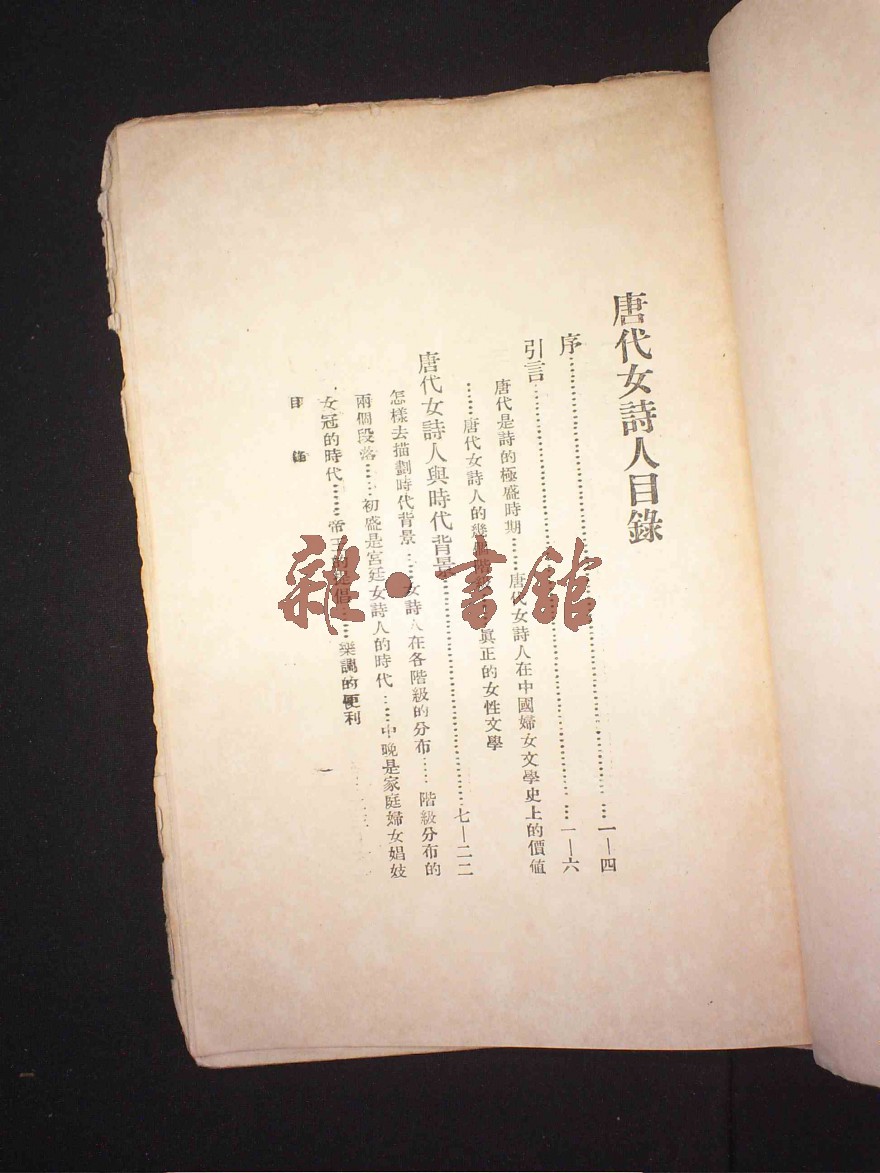 唐代女詩人目錄
序……一—四
引言……一—六
唐代是詩的極盛時期……唐代女詩人在中國婦女文學史上的價值
……唐代女詩人的幾個階級……真正的女性文學
唐代女詩人與時代背景……七—二二
怎樣去描劃時代背景……女詩人在各階級的分布……階級分布的
兩個段落……初盛是宮廷女詩人的時代……中晚是家庭婦女娼妓
女冠的時代……帝王的提倡……樂調的便利
目錄
一
雜·書館